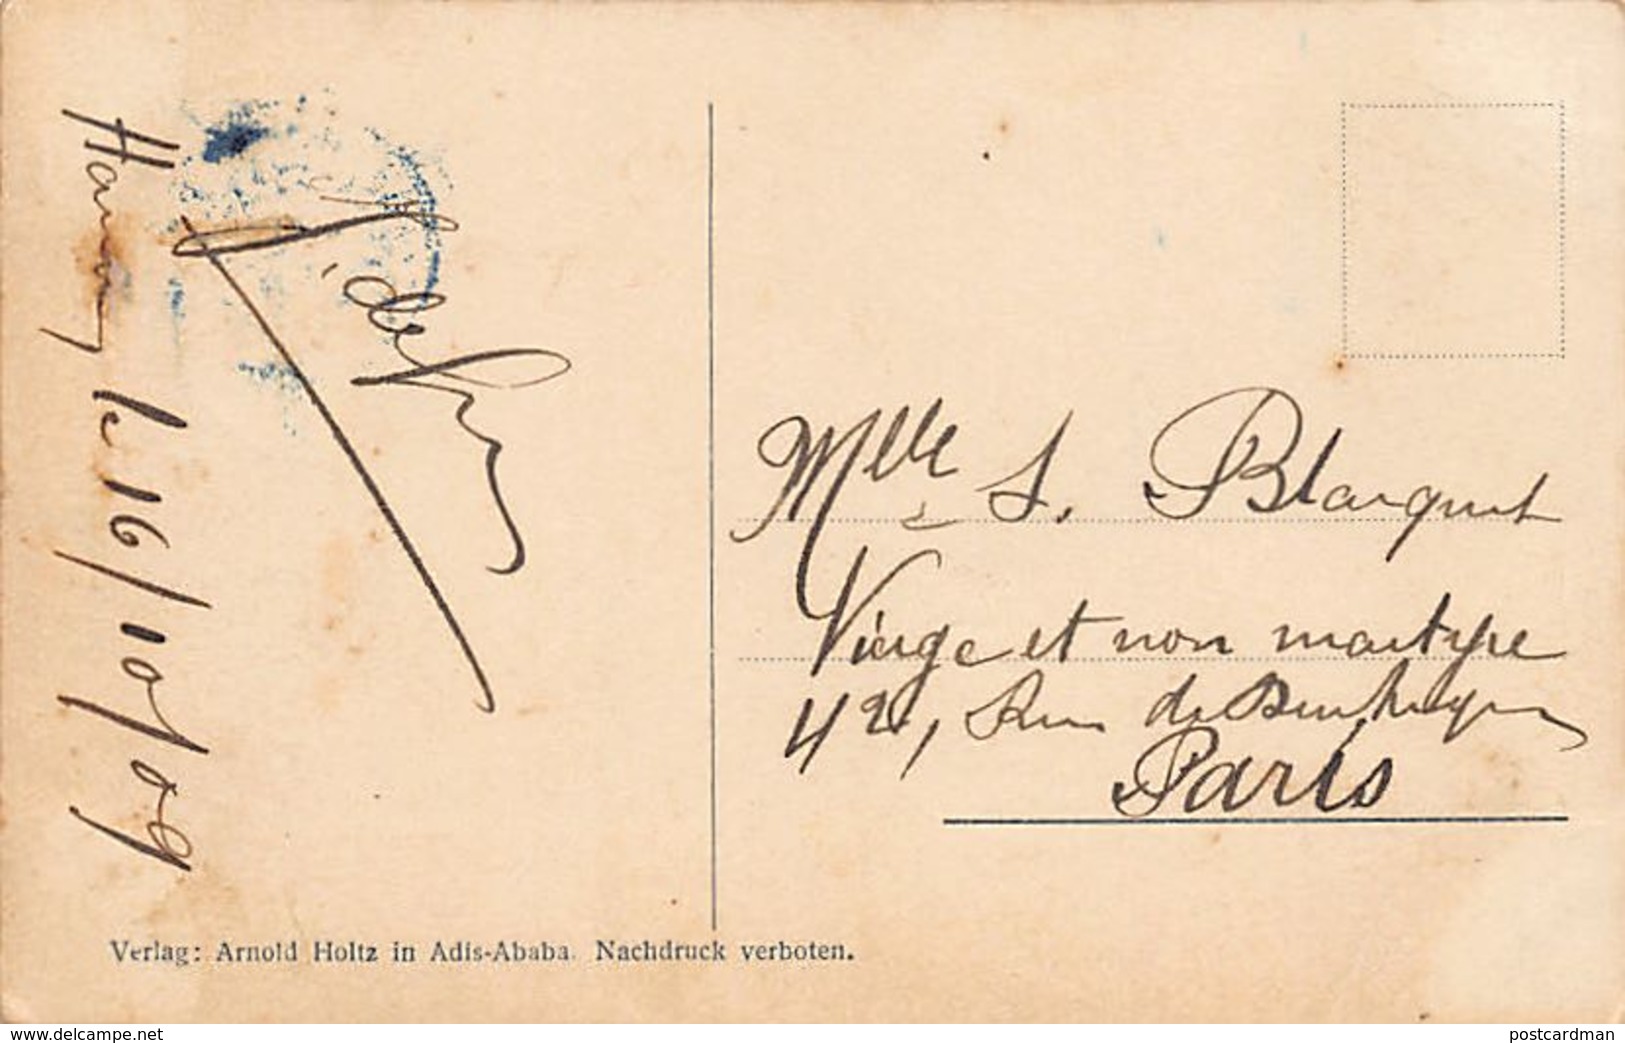 le 16/10/09
Mlle S. Blanquet
Vierge et non martyre
42, Rue de
Paris
Verlag: Arnold Holtz in Adis-Ababa. Nachdruck verboten.
www.delcampe.net
postcardman